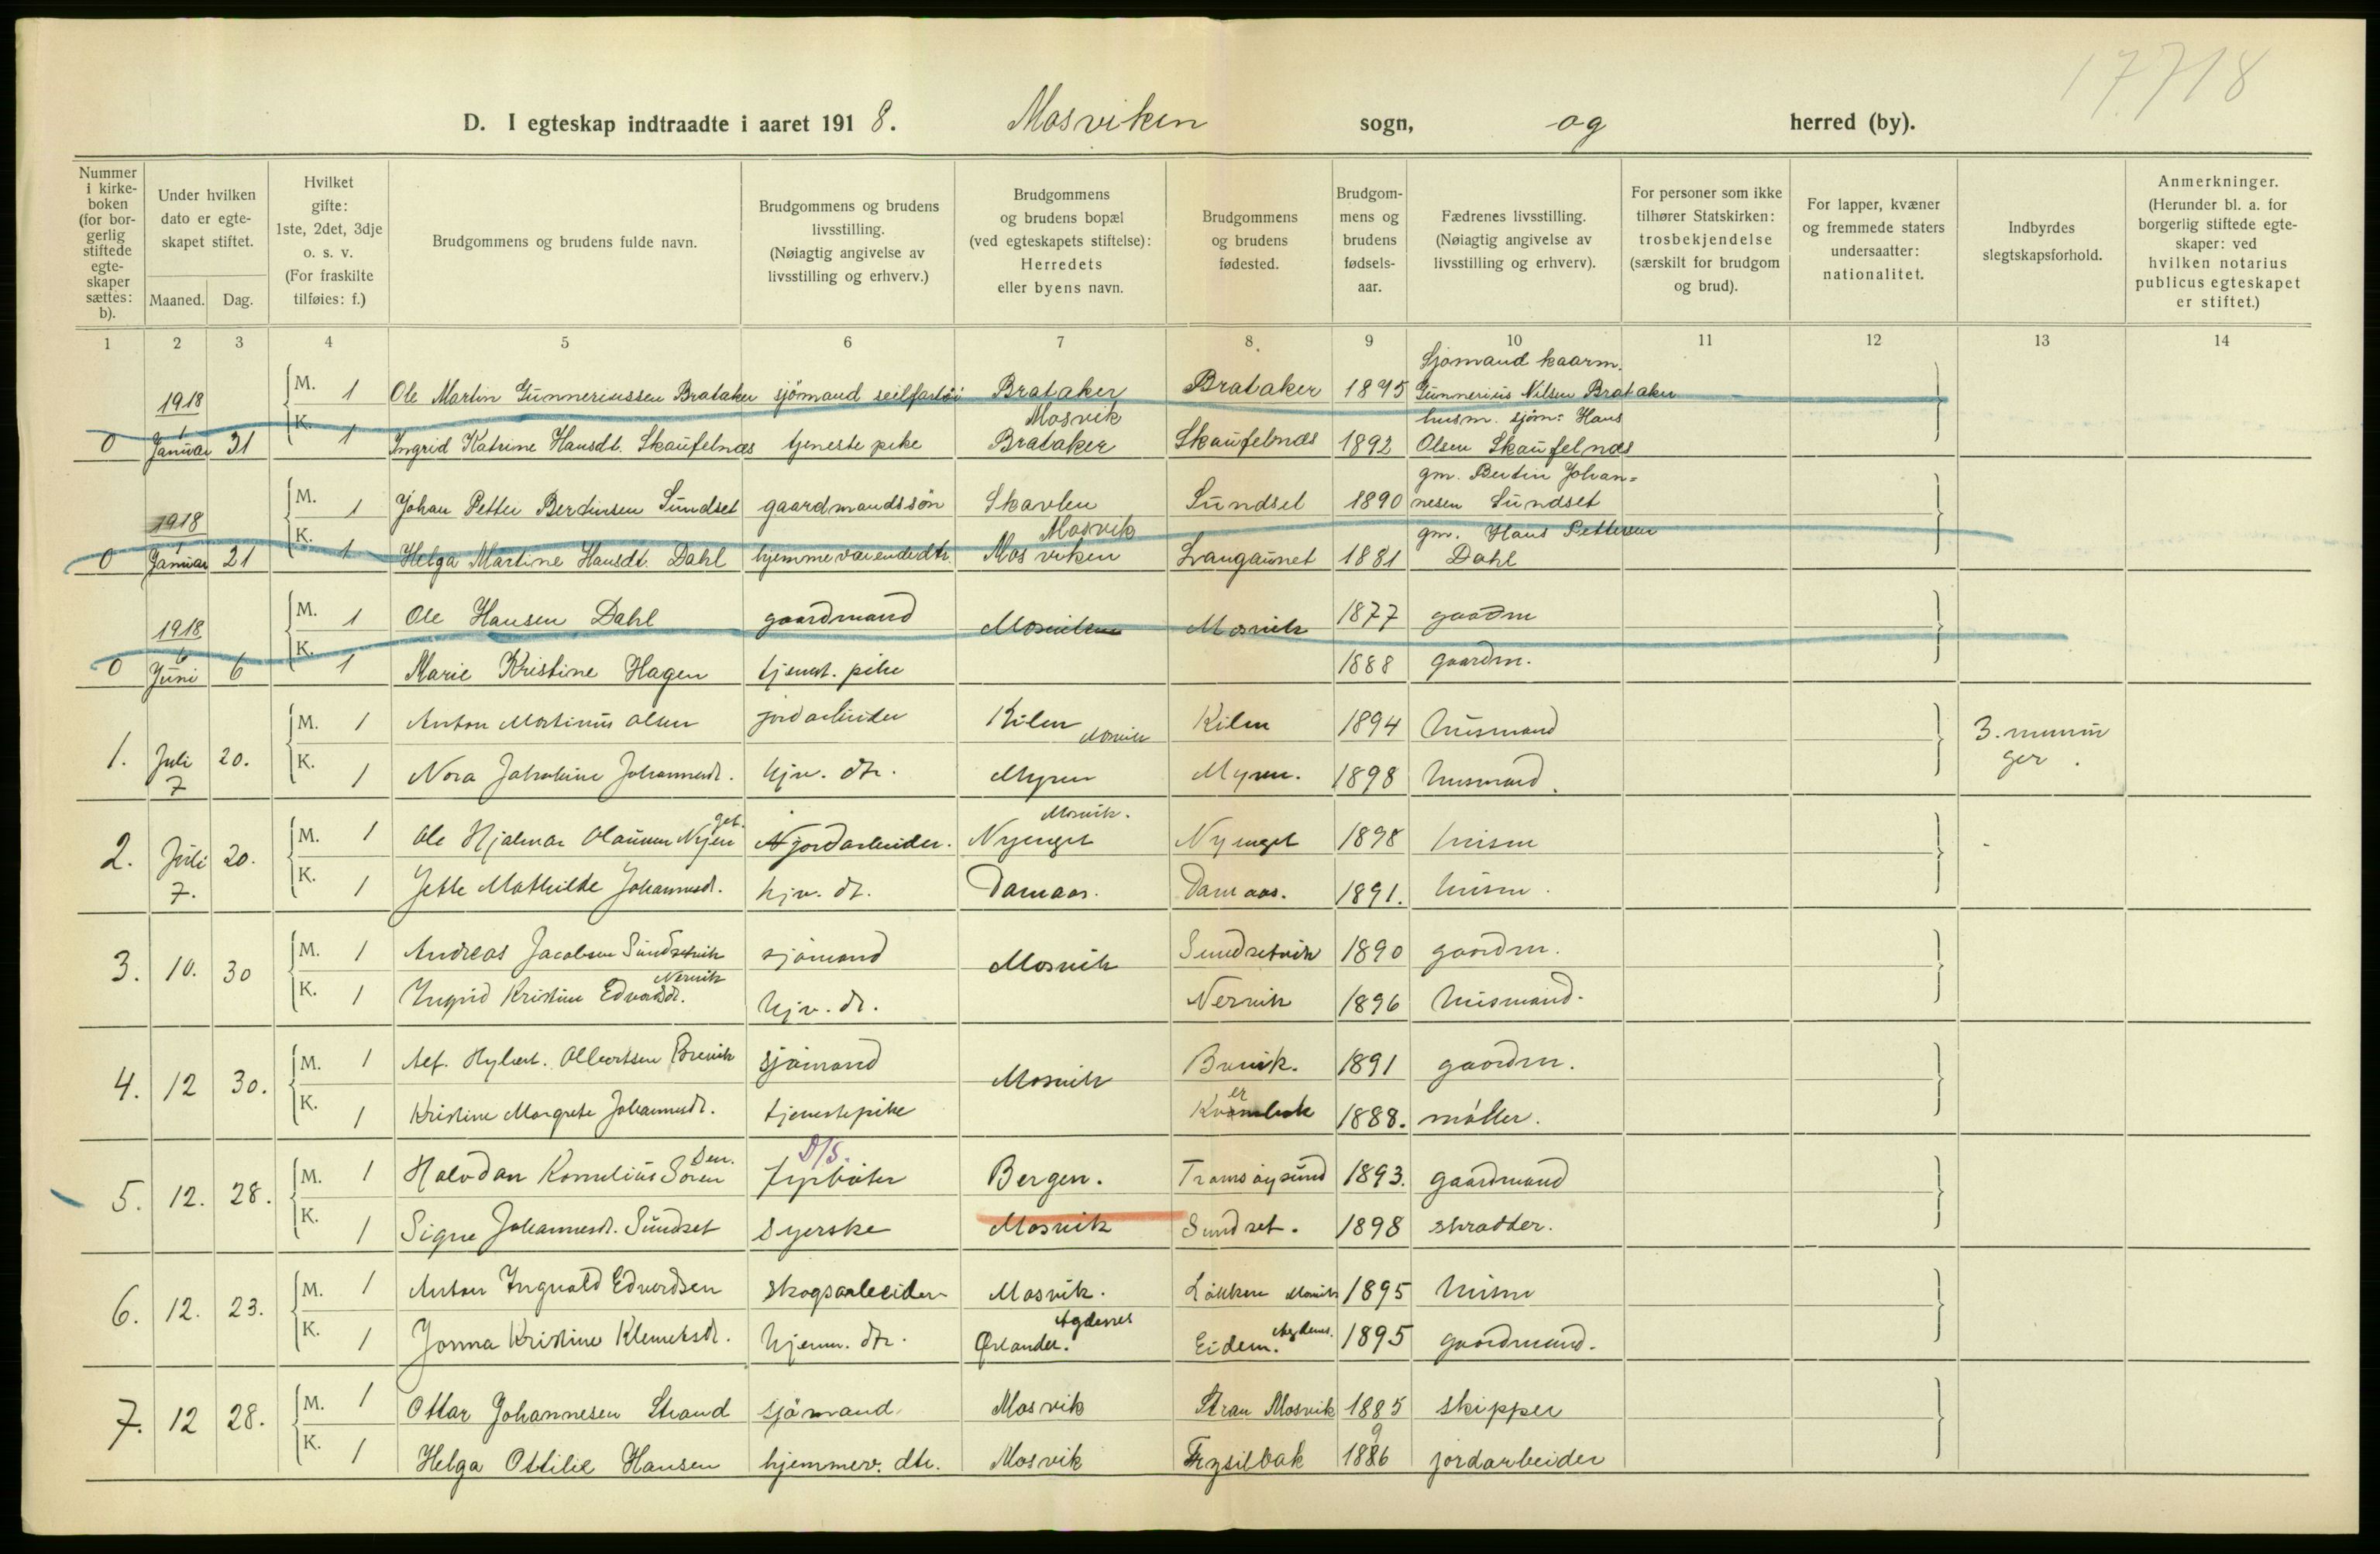 17718
D. I egteskap indtraadte i aaret 1918. Mosviken sogn, og herred (by).
Nummer i kirkeboken (for borgerlig stiftede egteskaper sættes: b).
Under hvilken dato er egteskapet stiftet.
Maaned. Dag.
Hvilket gifte: 1ste, 2det, 3dje o. s. v. (For fraskilte tilføies: f.)
Brudgommens og brudens fulde navn.
Brudgommens og brudens livsstilling. (Nøiagtig angivelse av livsstilling og erhverv.)
Brudgommens og brudens bopæl (ved egteskapets stiftelse): Herredets eller byens navn.
Brudgommens og brudens fødested.
Brudgommens og brudens fødselsaar.
Fædrenes livsstilling. (Nøiagtig angivelse av livsstilling og erhverv).
For personer som ikke tilhører Statskirken: trosbekjendelse (særskilt for brudgom og brud).
For lapper, kvæner og fremmede staters undersaatter: nationalitet.
Indbyrdes slegtskapsforhold.
Anmerkninger. (Herunder bl. a. for borgerlig stiftede egteskaper: ved hvilken notarius publicus egteskapet er stiftet.)
1 2 3 4 5 6 7 8 9 10 11 12 13 14
Sjømand kaarm.
1918 M. 1 Ole Martin Gunneriussen Brataker sjömand seilfartöi Brataker Brataker 1895 Gunnerius Nilsen Brataker
Mosvik husm. sjöm: Hans
0 Januar 31 K. 1 Ingrid Katrine Hansdt. Skaufelnæs tjeneste pike Brataker Skaufelnæs 1892 Olsen Skaufelnæs
gm. Bertin Johan=
1918 M. 1 Johan Petter Bertinsen Sundset gaardmandssön Skavlen Sundset 1890 nesen Sundset
Mosvik gm. Hans Pettersen
0 Januar 21 K. 1 Helga Martine Hansdt. Dahl hjemmeværendedtr. Mosviken Langaunet 1881 Dahl
1918 M. 1 Ole Hansen Dahl gaardmand Mosviken Mosvik 1877 gaardm
0 Juni 6 K. 1 Marie Kristine Hagen tjenest. pike 1888 gaardm.
M. 1 Anton Martinus Olsen jordarbeider Kilen Mosvik Kilen 1894 husmand
1. Juli 7 20. K. 1 Nora Jakobine Johannesdt. hjv. dtr. Myren Myren. 1898 husmand. 3. menninger.
2. Juli 7. 20. M. 1 Ole Hjalmar Olausen Nyenget. jordarbeider. Nyenget Mosvik. Nyenget 1898 husm
K. 1 Jette Mathilde Johannesdt. hjv. dt. Damaas. Damaas. 1891. husm.
3. 10. 30 M. 1 Andreas Jacobsen Sundsetvik sjömand Mosvik Sundsetvik 1890 gaardm.
K. 1 Ingrid Kristine Edvardsdt. Nervik hjv. dt. Nervik 1896 husmand.
4. 12 30. M. 1 Alf. Hylbert. Albertsen Brevik sjömand Mosvik Brevik. 1891 gaardm.
K. 1 Kristine Margrete Johannesdt. tjenestepike 1888. möller.
5. 12. 28. M. 1 Halvdan Kornelius Sörensen. D/S. fyrböter Bergen. Tromsöysund 1893. gaardmand
K. 1 Signe Johannesdt. Sundset Syerske Mosvik Sundset. 1898 skrædder.
6. 12. 23. M. 1 Anton Ingvald Edvardsen skogsarbeider Mosvik. Løkken Mosvik 1895 husm
K. 1 Jonna Kristine Klemetsdt. hjemv. dtr. Ørlandet. Agdenes Eidem. Agdenes. 1895 gaardmand.
7. 12 28. M. 1 Ottar Johannesen Strand sjömand Mosvik Stran Mosvik 1885 skipper
K. 1 Helga Ottilie Hansen hjemmev. dtr. Mosvik Trysilbak 1896 jordarbeider